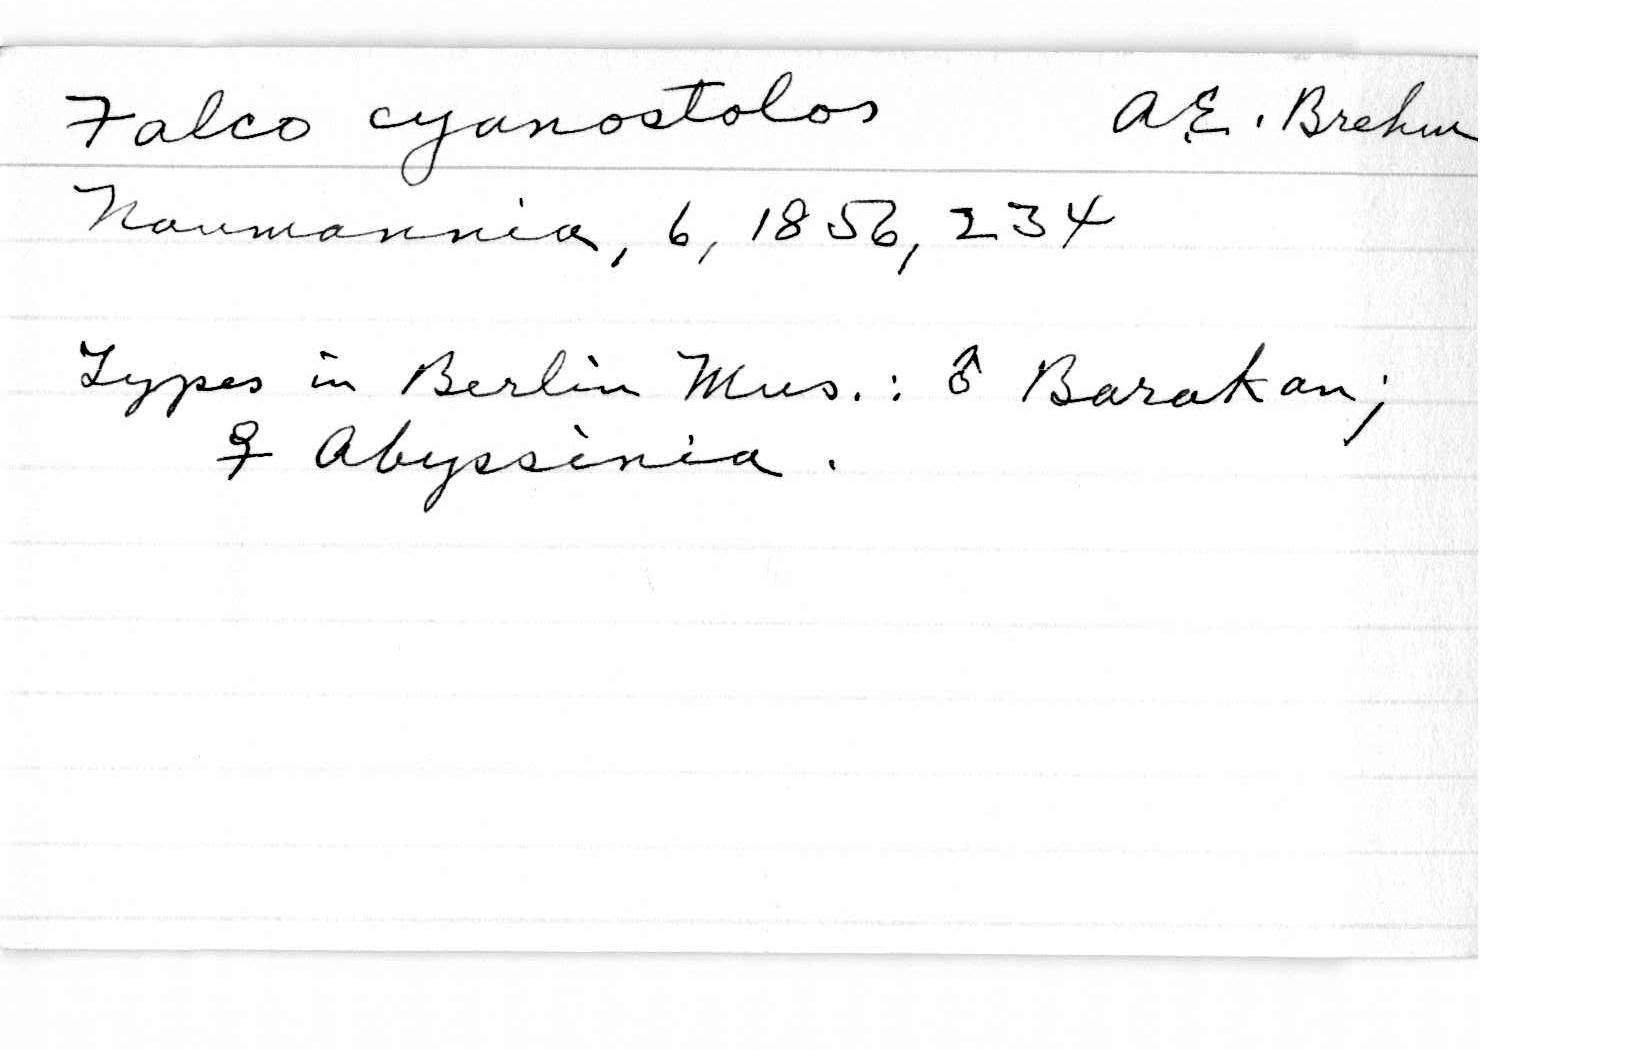 Falco cyanostolos A.E. Brehm
Naumannia, 6, 1856, 234
Types in Berlin Mus.: ♂ Barakan;
♀ Abyssinia.